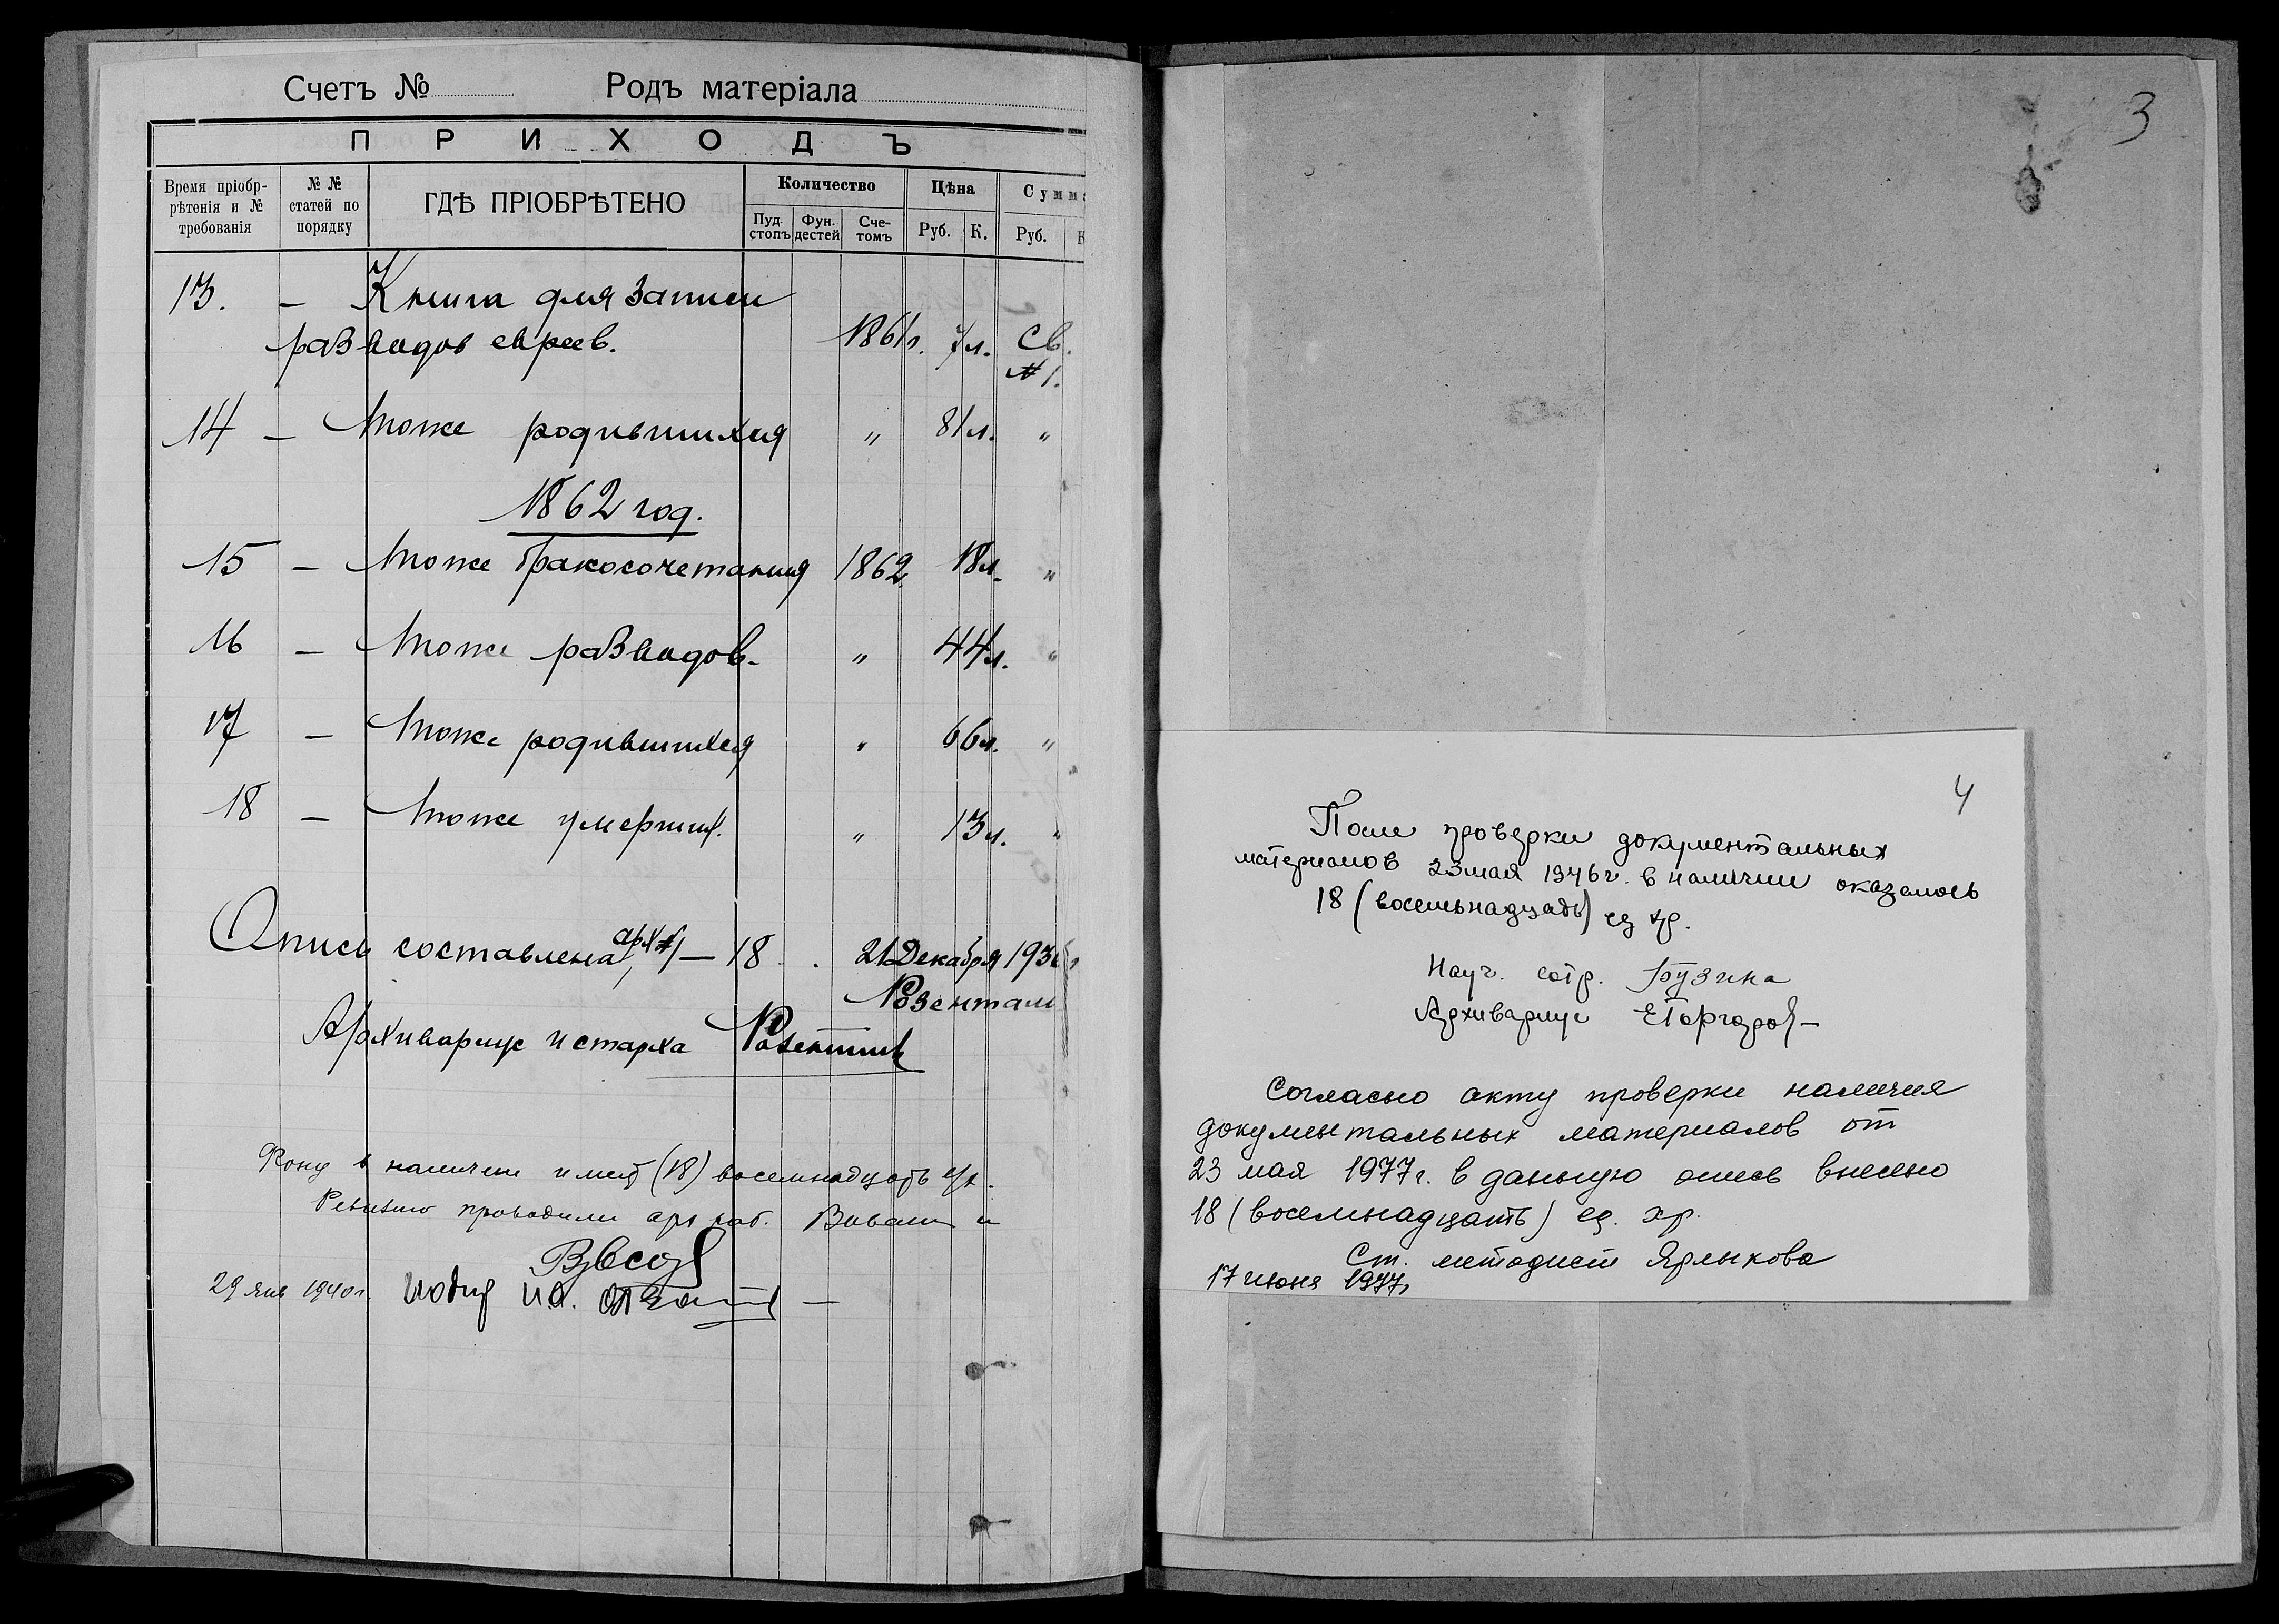 Счетъ № Родъ матеріала
ПРИХОДЪ
Время пріобр-
рѣтенія и №
требованія
№ №
статей по
порядку
ГДѢ ПРІОБРѢТЕНО
Количество
Пуд.
стопъ
Фун.
дестей
Сче-
томъ
Цѣна
Руб. К.
Сумм
Руб. К
13. — Книга для записи
разводов евреев. 1861г. 7л. Св.
№1.
14 — Тоже родившихся " 81л. "
1862 год.
15 — Тоже бракосочетания 1862 18л. "
16 — Тоже разводов — " 44л. "
17 — Тоже родившихся " 66л. "
18 — Тоже умерших. " 13л. "
Опись составлена арх №1 — 18. 21 Декабря 193
Розенталь
Архивариус истарха Розенталь
Фонд в наличии имеет (18) восемнадцать
Ревизию проводили арх раб. и
29 янв 1940г.
3
4
После проверки документальных
материалов 23 мая 1946г. в наличии оказалось
18 (восемьнадцать) ед хр.
Науч. сотр. Бузина
Архивариус
Согласно акту проверки наличия
документальных материалов от
23 мая 1977г. в данную опись внесено
18 (восемнадцать) ед. хр.
Ст. методист Ярлыкова
17 июня 1977г